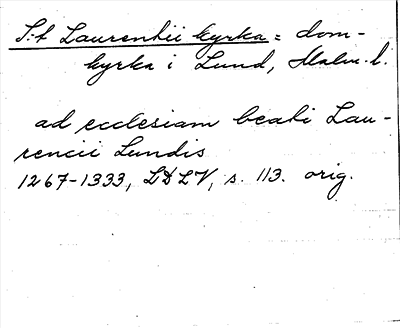 S:t Laurentii kyrka = dom-
kyrka i Lund, Malm. l.
ad ecclesiam beati Lau-
rencii Lundis
1267-1333, LDLV, s. 113. orig.